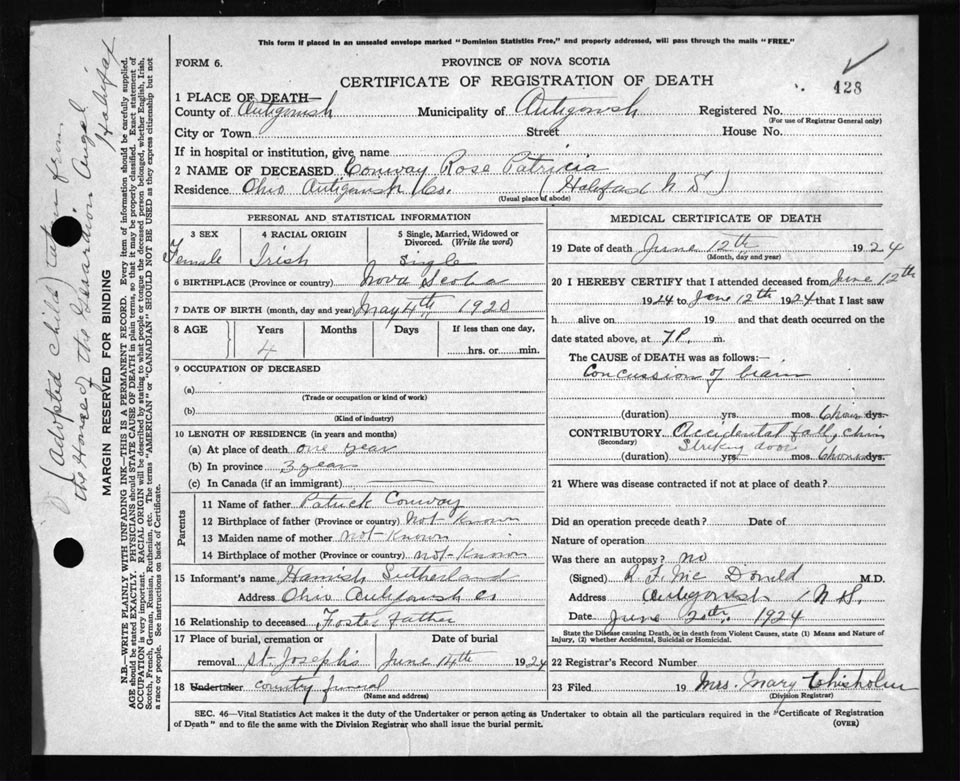 This form if placed in an unsealed envelope marked "Dominion Statistics Free," and properly addressed, will pass through the mails "FREE."
FORM 6.
PROVINCE OF NOVA SCOTIA
CERTIFICATE OF REGISTRATION OF DEATH
428
1 PLACE OF DEATH—
County of Antigonish Municipality of Antigonish Registered No.
(For use of Registrar General only)
City or Town Street House No.
If in hospital or institution, give name
2 NAME OF DECEASED Conway Rose Patricia
Residence Ohio Antigonish Co. (Halifax N S)
(Usual place of abode)
PERSONAL AND STATISTICAL INFORMATION
3 SEX 4 RACIAL ORIGIN 5 Single, Married, Widowed or Divorced. (Write the word)
Female Irish Single
6 BIRTHPLACE (Province or country) Nova Scotia
7 DATE OF BIRTH (month, day and year) May 4th 1920
8 AGE Years Months Days If less than one day,
4 hrs. or min.
9 OCCUPATION OF DECEASED
(a)
(Trade or occupation or kind of work)
(b)
(Kind of industry)
10 LENGTH OF RESIDENCE (in years and months)
(a) At place of death one year
(b) In province 3 years
(c) In Canada (if an immigrant)
Parents
11 Name of father Patrick Conway
12 Birthplace of father (Province or country) not known
13 Maiden name of mother not known
14 Birthplace of mother (Province or country) not known
15 Informant's name Hamish Sutherland
Address Ohio Antigonish Co
16 Relationship to deceased Foster Father
17 Place of burial, cremation or Date of burial
removal St. Joseph's June 14th 1924
18 Undertaker county funeral
(Name and address)
MEDICAL CERTIFICATE OF DEATH
19 Date of death June 12th 1924
(Month, day and year)
20 I HEREBY CERTIFY that I attended deceased from June 12th
1924 to June 12th 1924 that I last saw
h alive on 19 and that death occurred on
date stated above, at 7 P. m.
The CAUSE of DEATH was as follows:—
Concussion of brain
(duration) yrs. mos. 6 hours dys.
CONTRIBUTORY Accidental fall, chin
(Secondary) Striking door
(duration) yrs. mos. 6 hours dys.
21 Where was disease contracted if not at place of death?
Did an operation precede death? Date of
Nature of operation
Was there an autopsy? no
(Signed) R. F. Mc Donald M.D.
Address Antigonish N S.
Date June 20th 1924
State the Disease causing Death, or in death from Violent Causes, state (1) Means and Nature of
Injury, (2) whether Accidental, Suicidal or Homicidal.
22 Registrar's Record Number
23 Filed 19 Mrs. Mary Chisholm
(Division Registrar)
SEC. 46—Vital Statistics Act makes it the duty of the Undertaker or person acting as Undertaker to obtain all the particulars required in the "Certificate of Registration
of Death" and to file the same with the Division Registrar who shall issue the burial permit. (OVER)
(Adopted child) taken from
the Home of the Guardian Angel
Halifax
MARGIN RESERVED FOR BINDING
N.B.—WRITE PLAINLY WITH UNFADING INK—THIS IS A PERMANENT RECORD. Every item of information should be carefully supplied.
AGE should be stated EXACTLY. PHYSICIANS should STATE CAUSE OF DEATH in plain terms, so that it may be properly classified. Exact statement of
OCCUPATION is very important. RACIAL ORIGIN will be described by stating to what people or tongue the deceased person belonged, whether English, Irish,
Scotch, French, German, Russian, Ruthenian, etc. The terms "AMERICAN" or "CANADIAN" SHOULD NOT BE USED as they express citizenship but not
a race or people. See instructions on back of Certificate.